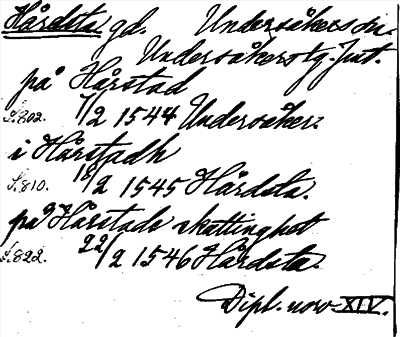 Hårdsta gd. Undersåkers sn.
Undersåkers tg. Jmt.
på Hårstad
S.802. 7/2 1544 Undersåker.
i Hårstadh
S.810. 18/2 1545 Hårdsta.
på Hårstada skattinghet
S.822. 22/2 1546 Hårdsta.
Dipl. norv. XIV.